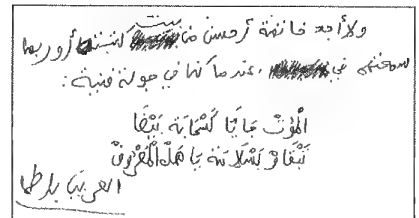 ولا أجد خاتمة أحسن من بيت كتبته أوربما
سمعته في ، عندما كنا في جولة فنية :
الْمُوتْ جَايَا كَسْحَابَة تَبْقَا
تَبْقَاوْ بَسْلَامَة يَا هَلْ الْمَعْرُوفْ
العربي باطما